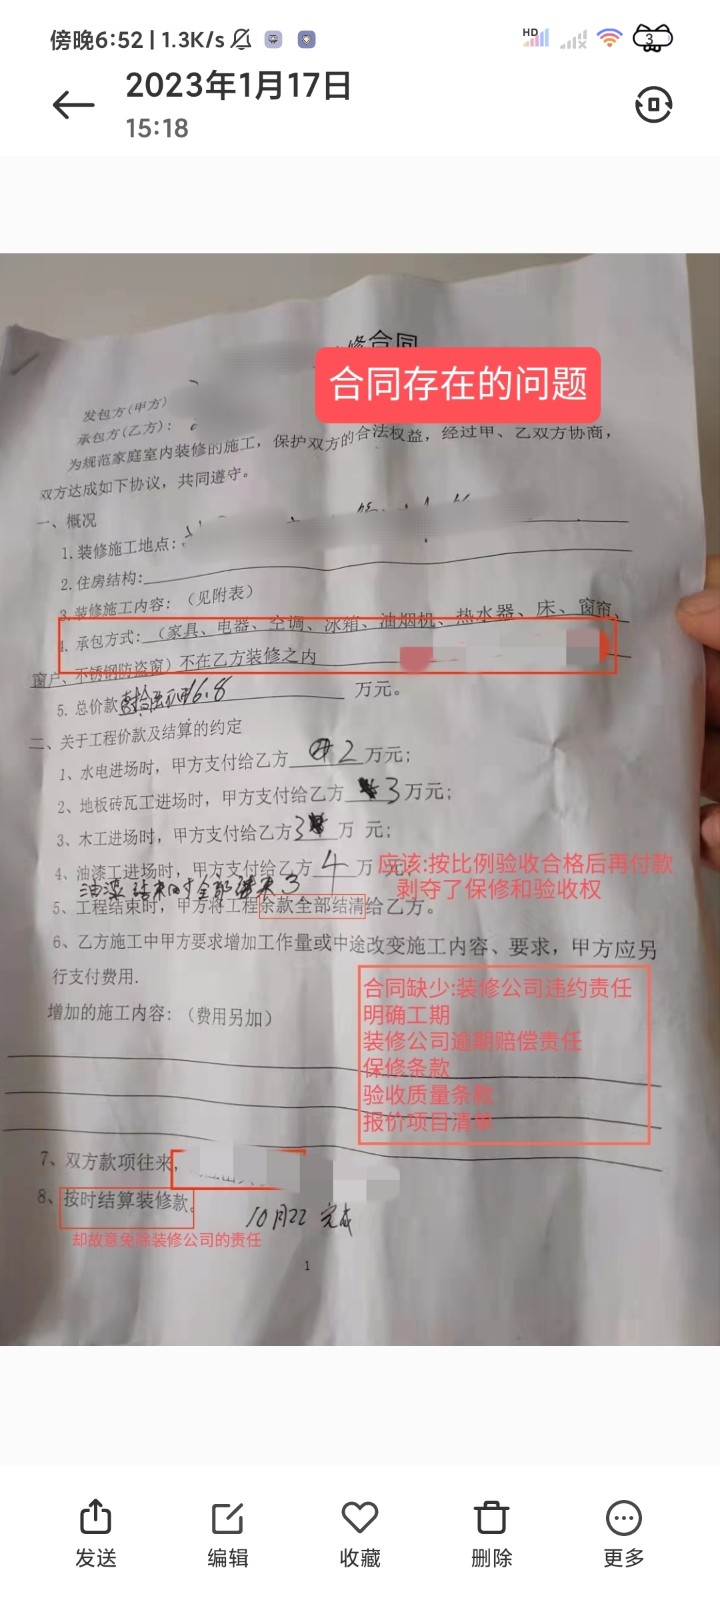 傍晚6:52 | 1.3K/s
HD
3
2023年1月17日
15:18
修合同
合同存在的问题
发包方(甲方)
承包方(乙方):
为规范家庭室内装修的施工，保护双方的合法权益，经过甲、乙双方协商，
双方达成如下协议，共同遵守。
一、概况
1.装修施工地点:
2.住房结构:
3.装修施工内容: （见附表）
4.承包方式: （家具、电器、空调、冰箱、油烟机、热水器、床、窗帘、
窗户、不锈钢防盗窗）不在乙方装修之内
5.总价款 16.8 万元。
二、关于工程价款及结算的约定
1、水电进场时，甲方支付给乙方 2 万元;
2、地板砖瓦工进场时，甲方支付给乙方 3万元;
3、木工进场时，甲方支付给乙方3 万 元;
4、油漆工进场时，甲方支付给乙方 4 万元
应该:按比例验收合格后再付款
剥夺了保修和验收权
油漆结束时全部结束3
5、工程结束时，甲方将工程余款全部结清给乙方。
6、乙方施工中甲方要求增加工作量或中途改变施工内容、要求，甲方应另
行支付费用.
合同缺少:装修公司违约责任
明确工期
装修公司逾期赔偿责任
保修条款
验收质量条款
报价项目清单
增加的施工内容: （费用另加）
7、双方款项往来,
8、按时结算装修款。
10月22 完成
却故意免除装修公司的责任
1
发送
编辑
收藏
删除
更多